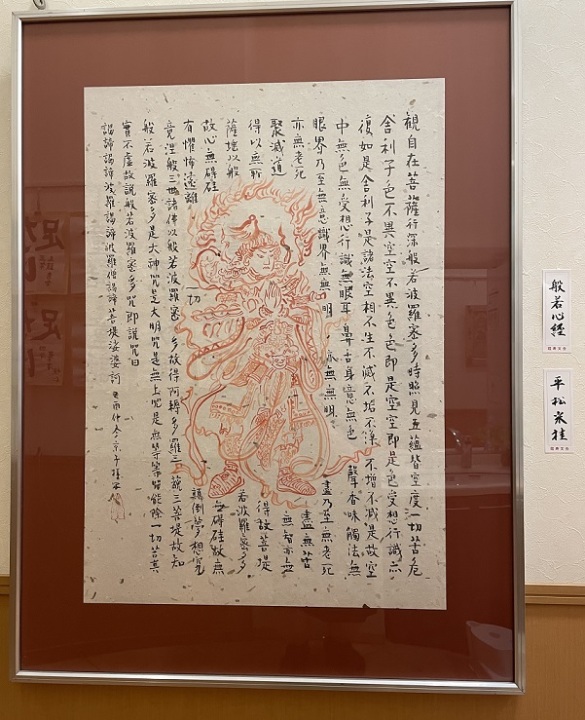 觀自在菩薩行深般若波羅蜜多時照見五蘊皆空度一切苦厄
舍利子色不異空空不異色色即是空空即是色受想行識亦
復如是舍利子是諸法空相不生不滅不垢不淨不增不減是故空
中無色無受想行識無眼耳鼻舌身意無色聲香味觸法無
眼界乃至無意識界無無明亦無無明盡乃至無老死
亦無老死盡無苦
聚滅道無智亦無
得以無所得故菩提
薩埵以般若波羅蜜多
故心無礙硅無礙硅故無
有懼怖遠離一切顛倒夢想究
竟涅般三世諸佛以般若波羅蜜多故得阿耨多羅三藐三菩提故知
般若波羅蜜多是大神咒是大明咒是無上咒是無等等咒能除一切苦真
實不虛故說般若波羅蜜多咒即說咒曰
謁諦謁諦波羅謁諦波羅僧謁諦菩提娑婆訶
般若心経
平松采桂